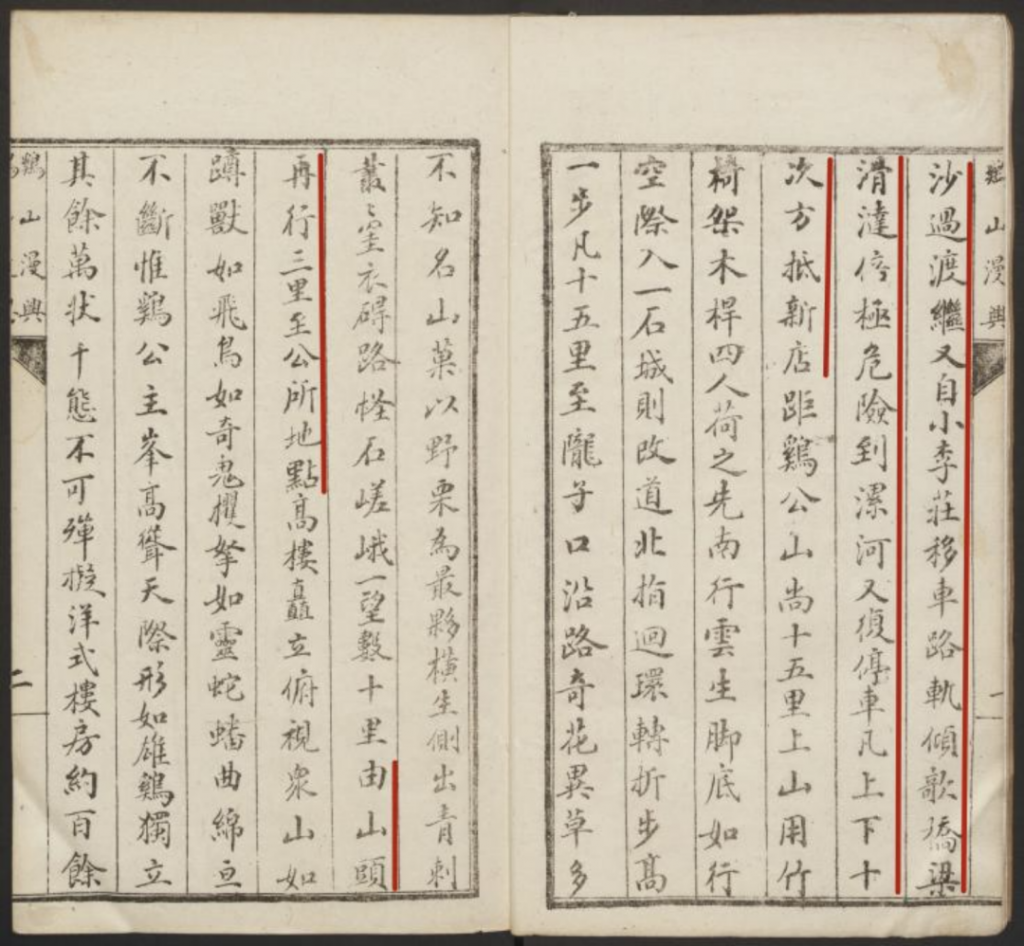 雞山漫興
沙過渡繼又自小李莊移車路軌傾欹橋梁
滑澾倍極危險到漯河又復停車凡上下十
次方抵新店距鷄公山尚十五里上山用竹
椅架木桿四人荷之先南行雲生脚底如行
空際入一石城則改道北指迴環轉折步高
一步凡十五里至隴子口沿路奇花異草多
不知名山菓以野栗為最夥橫生側出青刺
叢叢窒衣碍路怪石嵯峨一望數十里由山頭
再行三里至公所地點高樓矗立俯視衆山如
蹲獸如飛鳥如奇鬼攫拏如靈蛇蟠曲綿亘
不斷惟鷄公主峯高聳天際形如雄鷄獨立
其餘萬狀千態不可殫擬洋式樓房約百餘
鷄山漫興
二